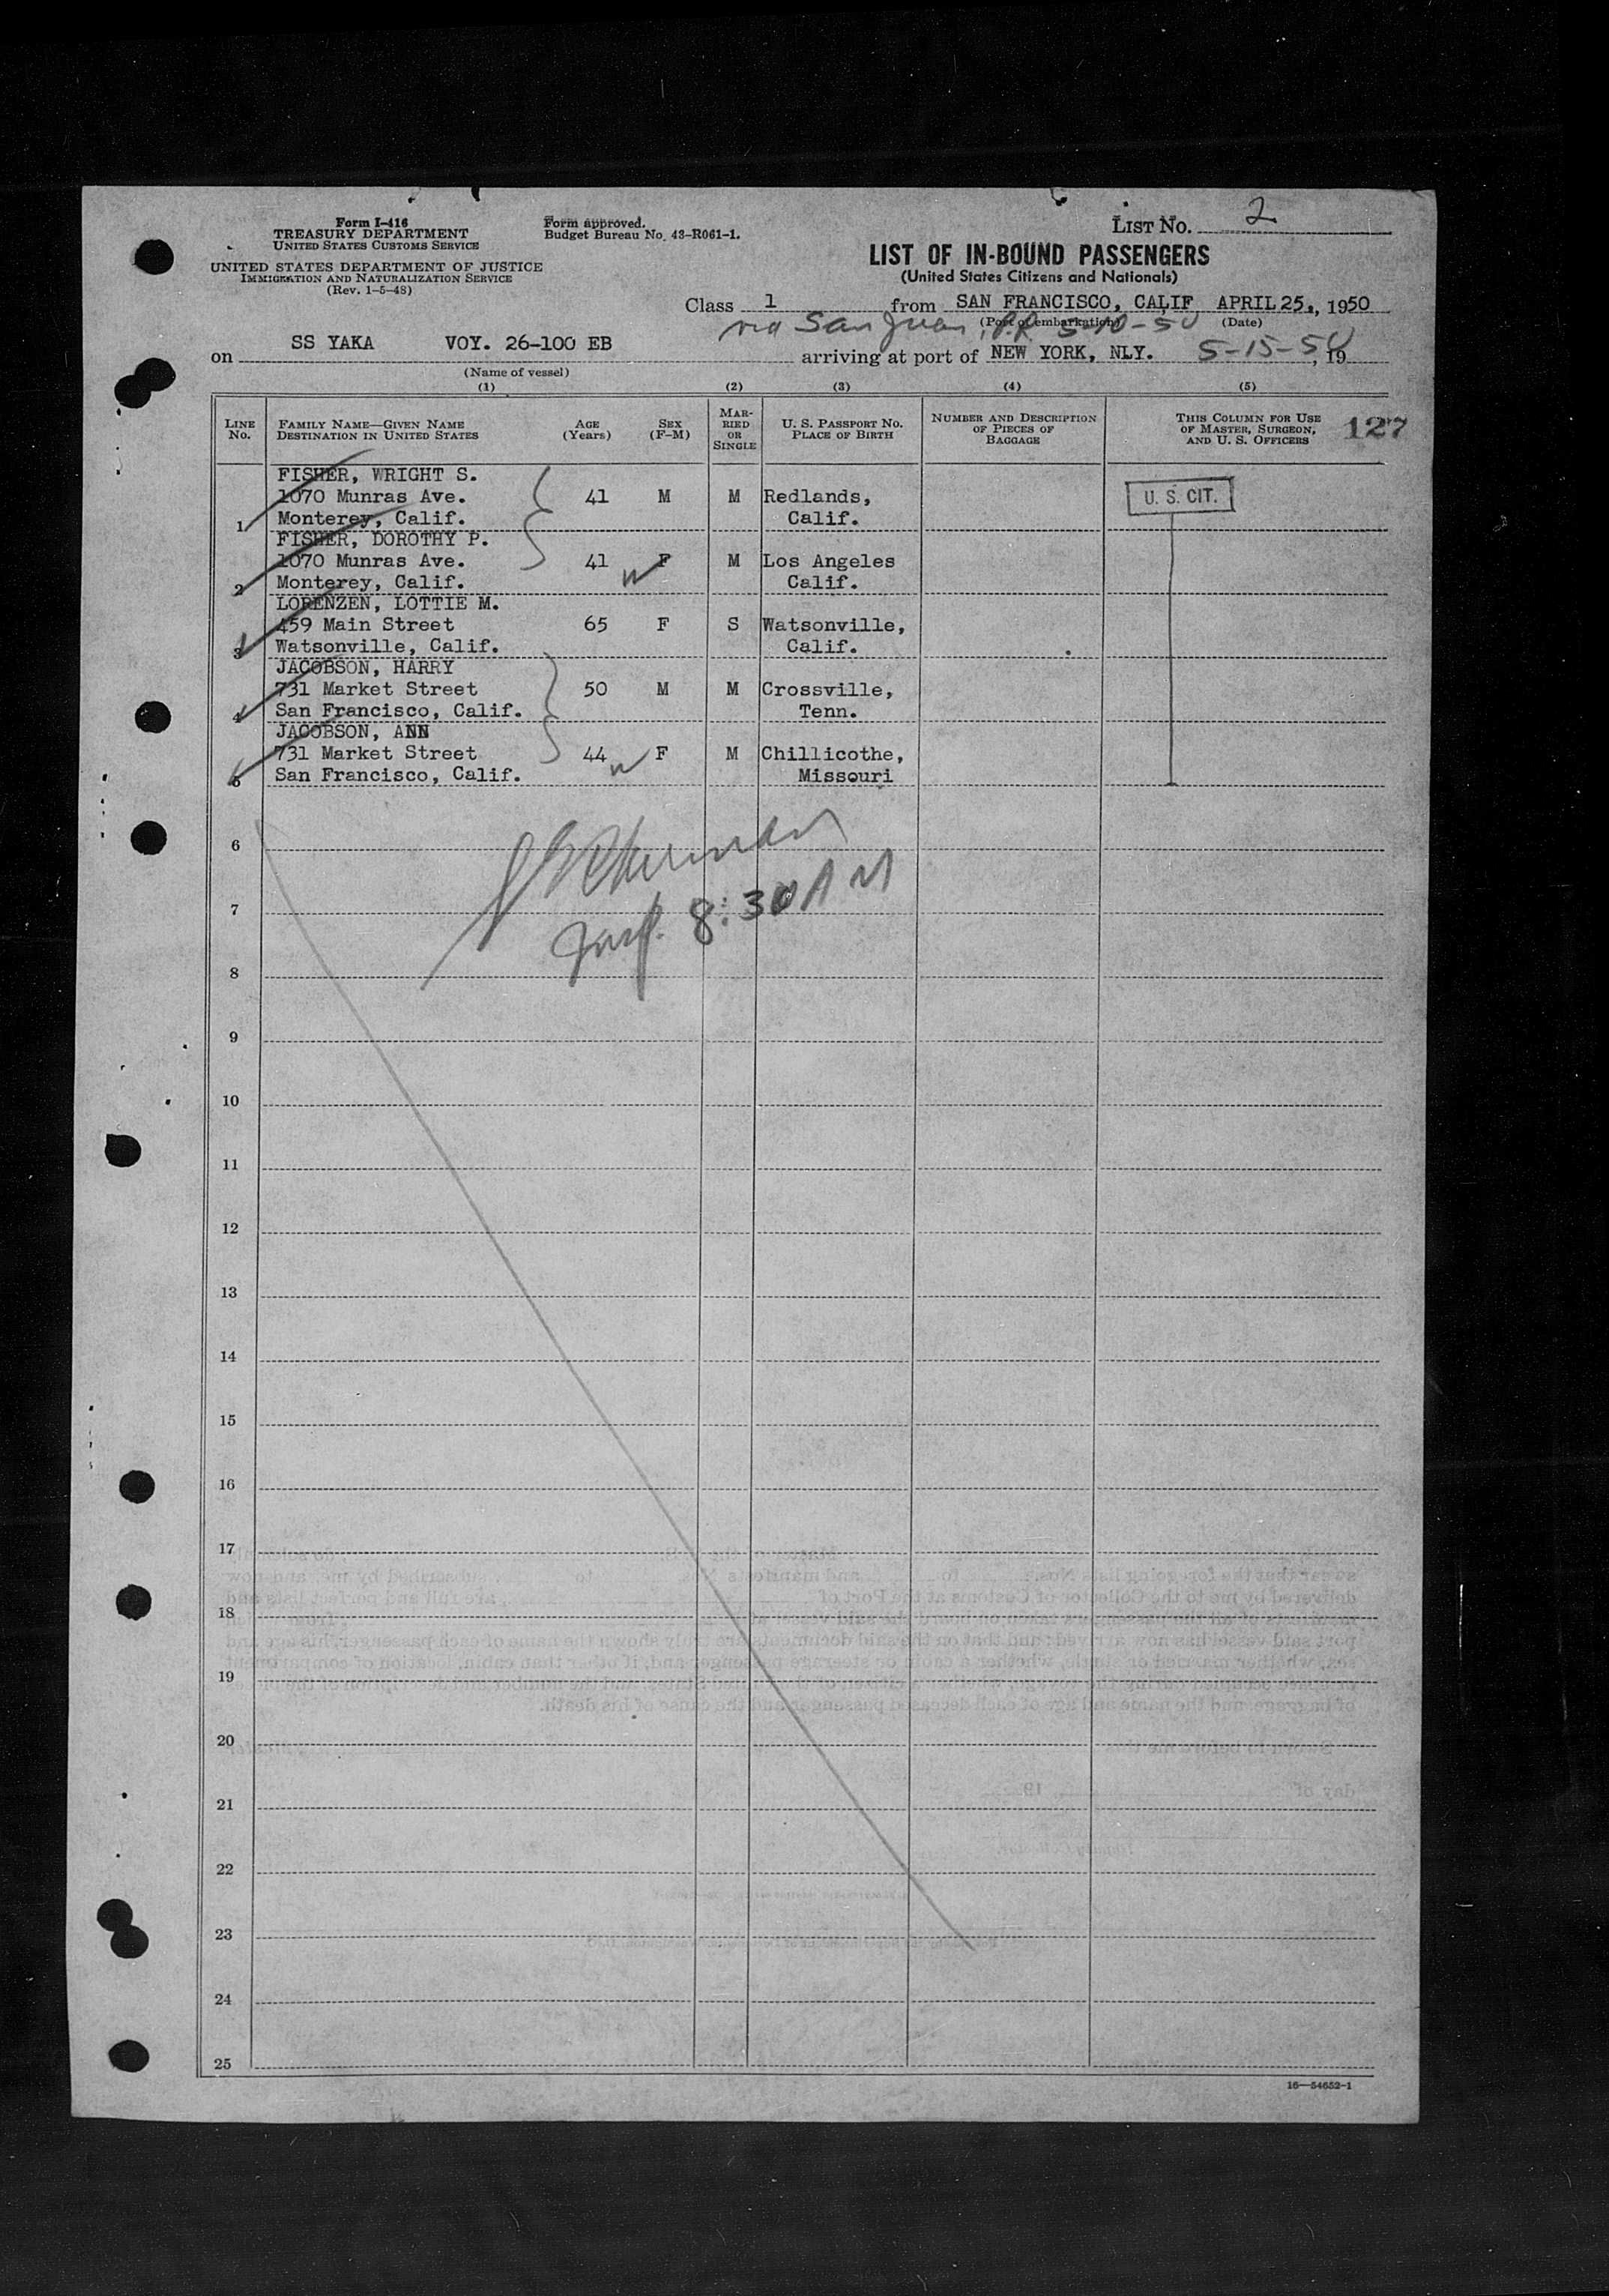 Form I-416
TREASURY DEPARTMENT
UNITED STATES CUSTOMS SERVICE
UNITED STATES DEPARTMENT OF JUSTICE
IMMIGRATION AND NATURALIZATION SERVICE
(Rev. 1-5-48)
Form approved.
Budget Bureau No. 43-R061-1.
LIST NO. 2
LIST OF IN-BOUND PASSENGERS
(United States Citizens and Nationals)
Class 1 from SAN FRANCISCO, CALIF APRIL 25, 1950
(Port of embarkation) (Date)
via San Juan, P.R. 5-10-50
on SS YAKA VOY. 26-100 EB arriving at port of NEW YORK, NLY. 5-15-50, 19
(Name of vessel)
(1) (2) (3) (4) (5)
LINE No. FAMILY NAME—GIVEN NAME DESTINATION IN UNITED STATES AGE (Years) SEX (F-M) MARRIED OR SINGLE U. S. PASSPORT NO. PLACE OF BIRTH NUMBER AND DESCRIPTION OF PIECES OF BAGGAGE THIS COLUMN FOR USE OF MASTER, SURGEON, AND U. S. OFFICERS 127
FISHER, WRIGHT S.
1070 Munras Ave. 41 M M Redlands, U. S. CIT.
1 Monterey, Calif. Calif.
FISHER, DOROTHY P.
1070 Munras Ave. 41 F M Los Angeles
2 Monterey, Calif. Calif.
LORENZEN, LOTTIE M.
459 Main Street 65 F S Watsonville,
3 Watsonville, Calif. Calif.
JACOBSON, HARRY
731 Market Street 50 M M Crossville,
4 San Francisco, Calif. Tenn.
JACOBSON, ANN
731 Market Street 44 F M Chillicothe,
5 San Francisco, Calif. Missouri
6
7
8:30 AM
8
9
10
11
12
13
14
15
16
17
18
19
20
21
22
23
24
25
16—54652-1